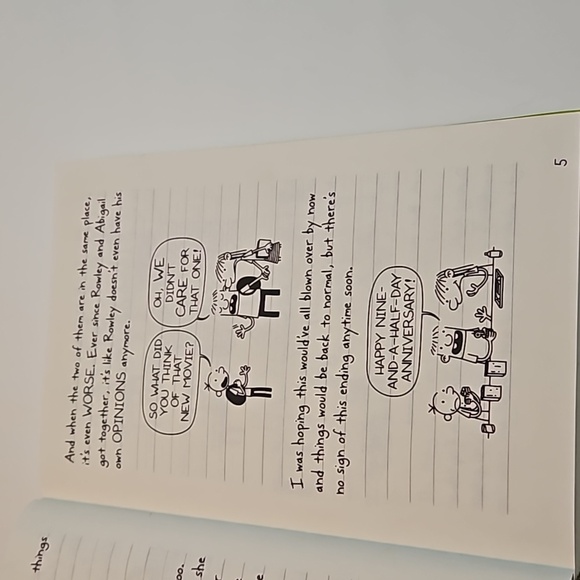 things
oo.
she
e
And when the two of them are in the same place,
it's even WORSE. Ever since Rowley and Abigail
got together, it's like Rowley doesn't even have his
own OPINIONS anymore.
SO WHAT DID
YOU THINK
OF THAT
NEW MOVIE?
OH, WE
DIDN'T
CARE FOR
THAT ONE!
I was hoping this would've all blown over by now
and things would be back to normal, but there's
no sign of this ending anytime soon.
HAPPY NINE-
AND-A-HALF-DAY
ANNIVERSARY!
5